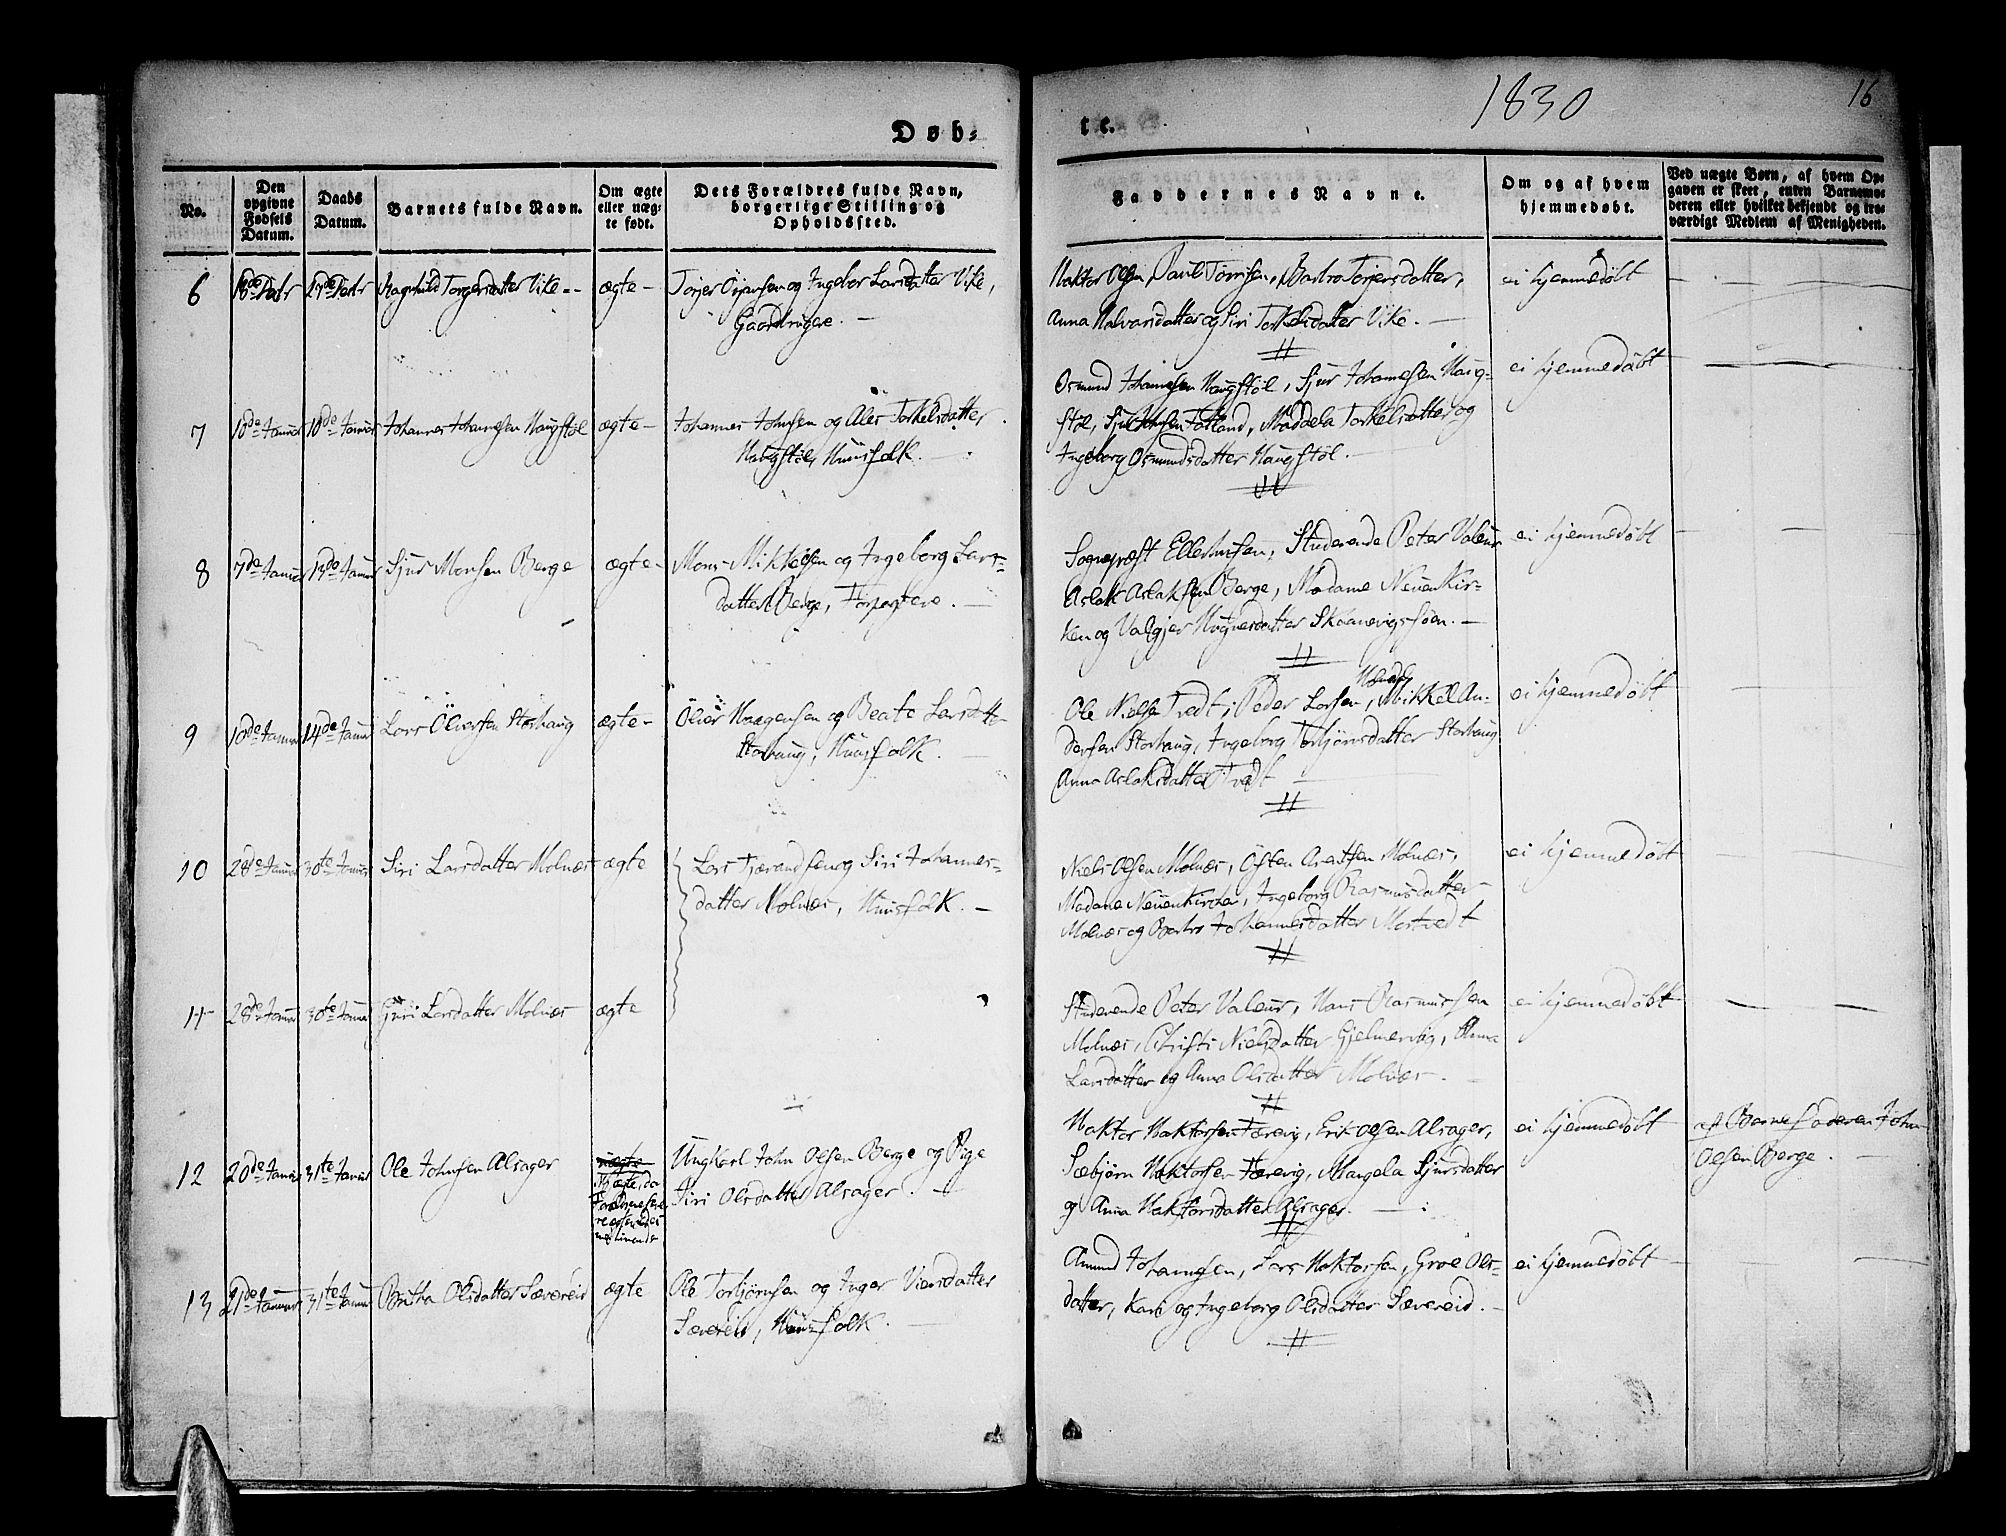 1830
16
Døb-
te.
No.
Den opgivne Fødsels Datum.
Daabs Datum.
Barnets fulde Navn.
Om ægte eller uægte født.
Dets Forældres fulde Navn, borgerlige Stilling og Opholdssted.
Faddernes Navne.
Om og af hvem hjemmedøbt.
Ved uægte Børn, af hvem Opgaven er skeet, enten Barnemoderen eller hvilket bekjendt og troværdigt Medlem af Menigheden.
6
Ragnhild Torgersdatter Vike
ægte
Torjer Ørjansen og Ingebor Larsdatter Vike,
Gaardbrugere.
Haktor Olsen, Paul Tørrisen, Barbro Torjersdatter,
Anna Halvarsdatter og Siri Torkelsdatter Vike.
ei hjemmedøbt
7
10de Januar
10de Januar
Johannes Johannesen Haugstøl
ægte
Johannes Johnsen og Alis Torkelsdatter
Haugstøl, Huusfolk.
Osmund Johannesen Haugstøl, Sjur Johannesen Haug-
støl, Sjur Johnsen Fatland, Maddela Torkelsdatter og
Ingeborg Osmundsdatter Haugstøl.
ei hjemmedøbt
8
7de Januar
13de Januar
Sjur Monsen Berge
ægte
Mons Mikkelsen og Ingeborg Lars-
datter Berge, Forpagtere.
Sognepræst Ellerhusen, Studerende Peter Valeur
Aslak Aslaksen Berge, Madame Neuenkir-
ken og Valgjer Hognesdatter Skaanevigsøen.
ei hjemmedøbt
9
10de Januar
14de Januar
Lars Öliversen Storhaug
ægte
Oliver Haagensen og Beate Larsdatter
Storhaug, Huusfolk.
Ole Nielsen Tvedt, Peder Larsen, Mikkel An-
dersen Storhaug, Ingeborg Torbjørnsdatter Storhaug
Anna Aslaksdatter Tvedt
ei hjemmedøbt
10
28de Januar
30te Januar
Siri Larsdatter Molnæs
ægte
Lars Tjerandsen og Siri Johannes-
datter Molnæs, Huusfolk.
Niels Olsen Molnæs, Østen Arentsen Molnæs,
Madame Neuenkirchen, Ingeborg Rasmusdatter
Molnæs og Barbro Johannesdatter Mostvedt
ei hjemmedøbt
11
28de Januar
30te Januar
Guri Larsdatter Molnæs
ægte
Studerende Peter Valeur, Hans Rasmussen
Molnæs, Christi Nielsdatter Gjelmervig, Anna
Larsdatter og Anna Olsdatter Molnæs.
ei hjemmedøbt
12
20de Januar
31te Januar
Ole Johnsen Alsager
uægte
Ungkarl John Olsen Berge og Pige
Siri Olsdatter Alsager.
Haktor Haktorsen Færevig, Erik Olsen Alsager,
Sæbjørn Haktorsen Færevig, Mangela Sjursdatter
og Anna Haktorsdatter Alsager.
ei hjemmedøbt
af Barnefaderen John
Olsen Berge.
13
21de Januar
31te Januar
Britha Olsdatter Sævereid
ægte
Ole Torbjørnsen og Inger Viersdatter
Sævereid, Huusfolk.
Amund Johannesen, Lars Haktorsen, Groe Ols-
datter, Kari og Ingeborg Olsdatter Sævereid.
ei hjemmedøbt